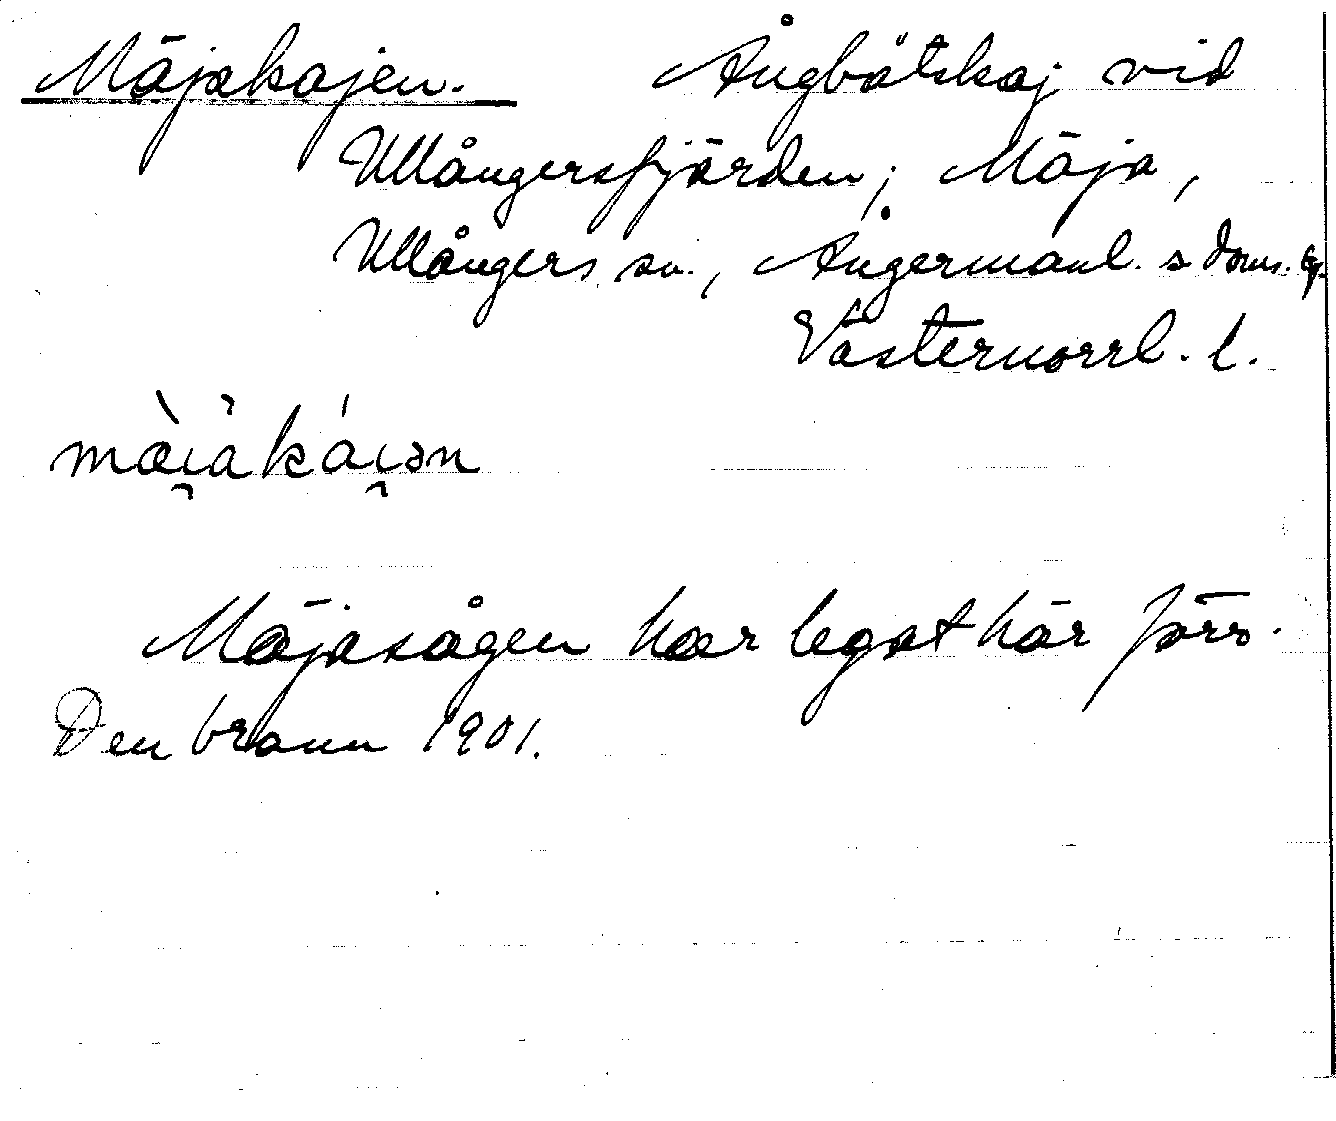 Mäjakajen. Ångbåtskaj vid
Ullångersfjärden; Mäja,
Ullångers sn., Ångermanl. s doms. lg.
Västernorrl. l.
mà̯ıakáı̯ən
Mäjasågen har legat här förr.
Den brann 1901.